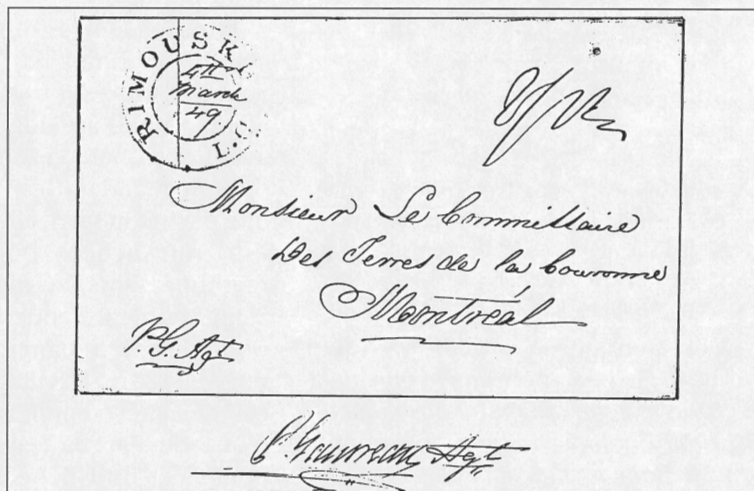 RIMOUSKI L.C.
4th
March
49
Monsieur Le Commissaire
Des Terres de la Couronne
Montréal
P.G. Agt
P. Gauvreau Agt